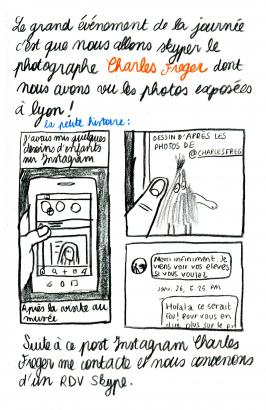 Le grand événement de la journée
c'est que nous allons skyper le
photographe Charles Freger dont
nous avons vu les photos exposées
à Lyon!
la petite histoire:
J'avais mis quelques
dessins d'enfants
sur Instagram
Après la visite au
musée
DESSIN D'APRÈS LES
PHOTOS DE
@CHARLESFREG
Merci infiniment. Je
viens voir vos élèves
si vous voulez
JANV. 26, 5:25 PM
Holala ce serait
fou! Pour vous en
dire plus sur le pr
Suite à ce post Instagram Charles
Freger me contacte et nous convenons
d'un RDV Skype.